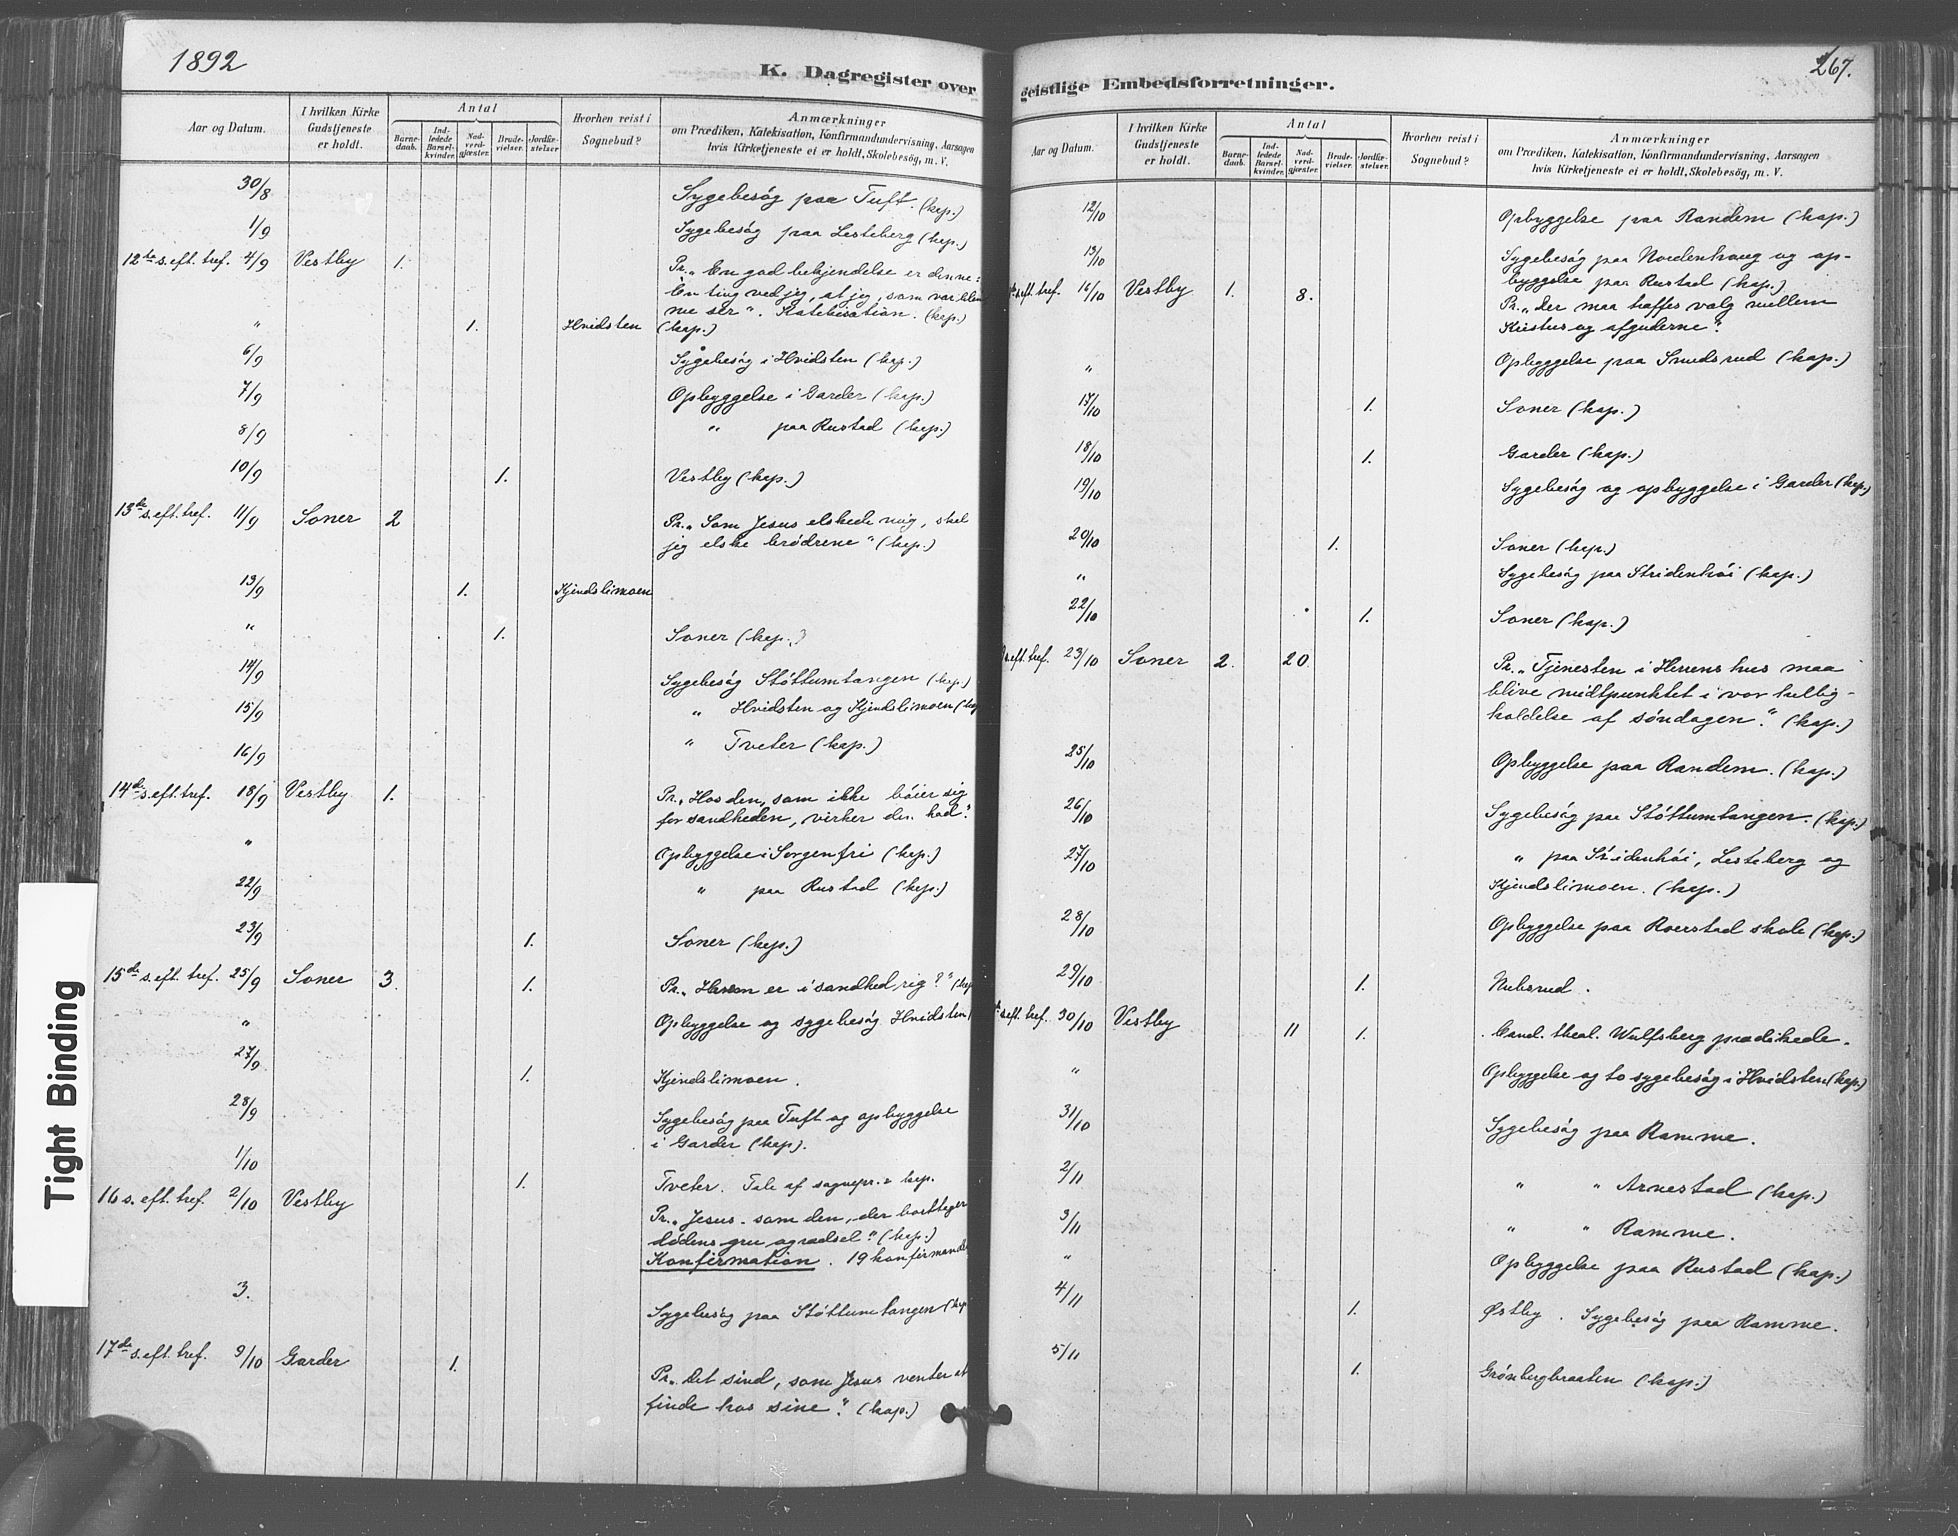 1892
K. Dagregister over
Aar og Datum.
I hvilken Kirke Gudstjeneste er holdt.
Antal
Barne-daab.
Ind-ledede Barsel-kvinder.
Nad-verd-gjæster.
Brude-vielser.
Jordfæ-stelser
Hvorhen reist i Sognebud?
Anmærkninger
om Prædiken, Katekisation, Konfirmandundervisning, Aarsagen
hvis Kirketjeneste ei er holdt, Skolebesög, m. V.
30/8 Sygebesøg paa Tuft. (kap.)
1/9 Sygebesøg paa Lesteberg (kap.)
12te s. eft. tref. 4/9 Vestby 1. Pr. „En god bekjendelse er denne:
En ting ved jeg, at jeg, som var blin
nu ser". Katekisation. (kap.)
" 1. Hvidsten (kap.)
6/9 Sygebesøg i Hvidsten (kap.)
7/9 Opbyggelse i Garder (kap.)
8/9 " paa Rustad (kap.)
10/9 1. Vestby (kap.)
13de s. eft. tref. 11/9 Soner 2 Pr. „Som Jesus elskede mig, skal
jeg elske brødrene" (kap.)
13/9 1. Kjendslimoen
" 1. Soner (kap.)
14/9 Sygebesøg Støttumtangen (kap.)
15/9 " Hvidsten og Kjendslimoen (kap
16/9 " Tveter (kap.)
14de s. eft. tref. 18/9 Vestby 1. Pr. „Hos den, som ikke bøier sig
for sandheden, virker den had".
" Opbyggelse i Sorgenfri (kap.)
22/9 " paa Rustad (kap.)
23/9 1. Soner (kap.)
15de s. eft. tref. 25/9 Soner 3. 1. Pr. „Hvem er i sandhed rig?" (kap
" Opbyggelse og sygebesøg Hvidsten
27/9 1. Kjendslimoen.
28/9 Sygebesøg paa Tuft og opbyggelse
i Garder (kap).
1/10 1. Tveter. Tale af sognepr. & kap.
16 s. eft. tref. 2/10 Vestby Pr. „Jesus som den, der borttager
dødens gru og rædsel". (kap.)
Konfirmation. 19 konfirmander
3. Sygebesøg paa Støttumtangen (kap
17de s. eft. tref. 9/10 Garder 1. Pr. „Det sind, som Jesus venter at
finde hos sine". (kap.)
267.
geistlige Embedsforretninger.
Aar og Datum.
I hvilken Kirke Gudstjeneste er holdt.
Antal
Barne-daab.
Ind-ledede Barsel-kvinder.
Nad-verd-gjæster.
Brude-vielser.
Jordfæ-stelser.
Hvorhen reist i Sognebud?
Anmærkninger
om Prædiken, Katekisation, Konfirmandundervisning, Aarsagen
hvis Kirketjeneste ei er holdt, Skolebesög, m. V.
12/10 Opbyggelse paa Randem (kap.)
13/10 Sygebesøg paa Nordenhaug og op-
byggelse paa Rustad (kap.)
s. eft. tref. 16/10 Vestby 1. 8. Pr. „Der maa træffes valg mellem
Kristus og afguderne".
" Opbyggelse paa Smedsrud (kap.)
17/10 1. Soner (kap.)
18/10 1. Garder (kap.)
19/10 Sygebesøg og opbyggelse i Garder (kap.)
20/10 1. Soner (kap.)
" Sygebesøg paa Stridenhøi (kap.)
22/10 1. Soner (kap.)
s. eft. tref. 23/10 Soner 2. 20. Pr. „Tjenesten i Herrens hus maa
blive midtpunktet i vor hellig-
holdelse af søndagen". (kap.)
25/10 Opbyggelse paa Randem. (kap.)
26/10 Sygebesøg paa Støttumtangen. (kap.)
27/10 " paa Stridenhøi, Lesteberg og
Kjendslimoen. (kap.)
28/10 Opbyggelse paa Roerstad skole (kap.)
29/10 1. Nubsrud.
s. eft. tref. 30/10 Vestby 11 1. Cand. theol. Wulfsberg prædikede.
" Opbyggelse og to sygebesøg i Hvidsten (kap.)
31/10 Sygebesøg paa Ramme.
2/11 " " Arnestad (kap.)
3/11 " " Ramme.
" Opbyggelse paa Rustad (kap.)
4/11 1. Østby. Sygebesøg paa Ramme.
5/11 1. Grønbergbraaten (kap.)
Tight Binding